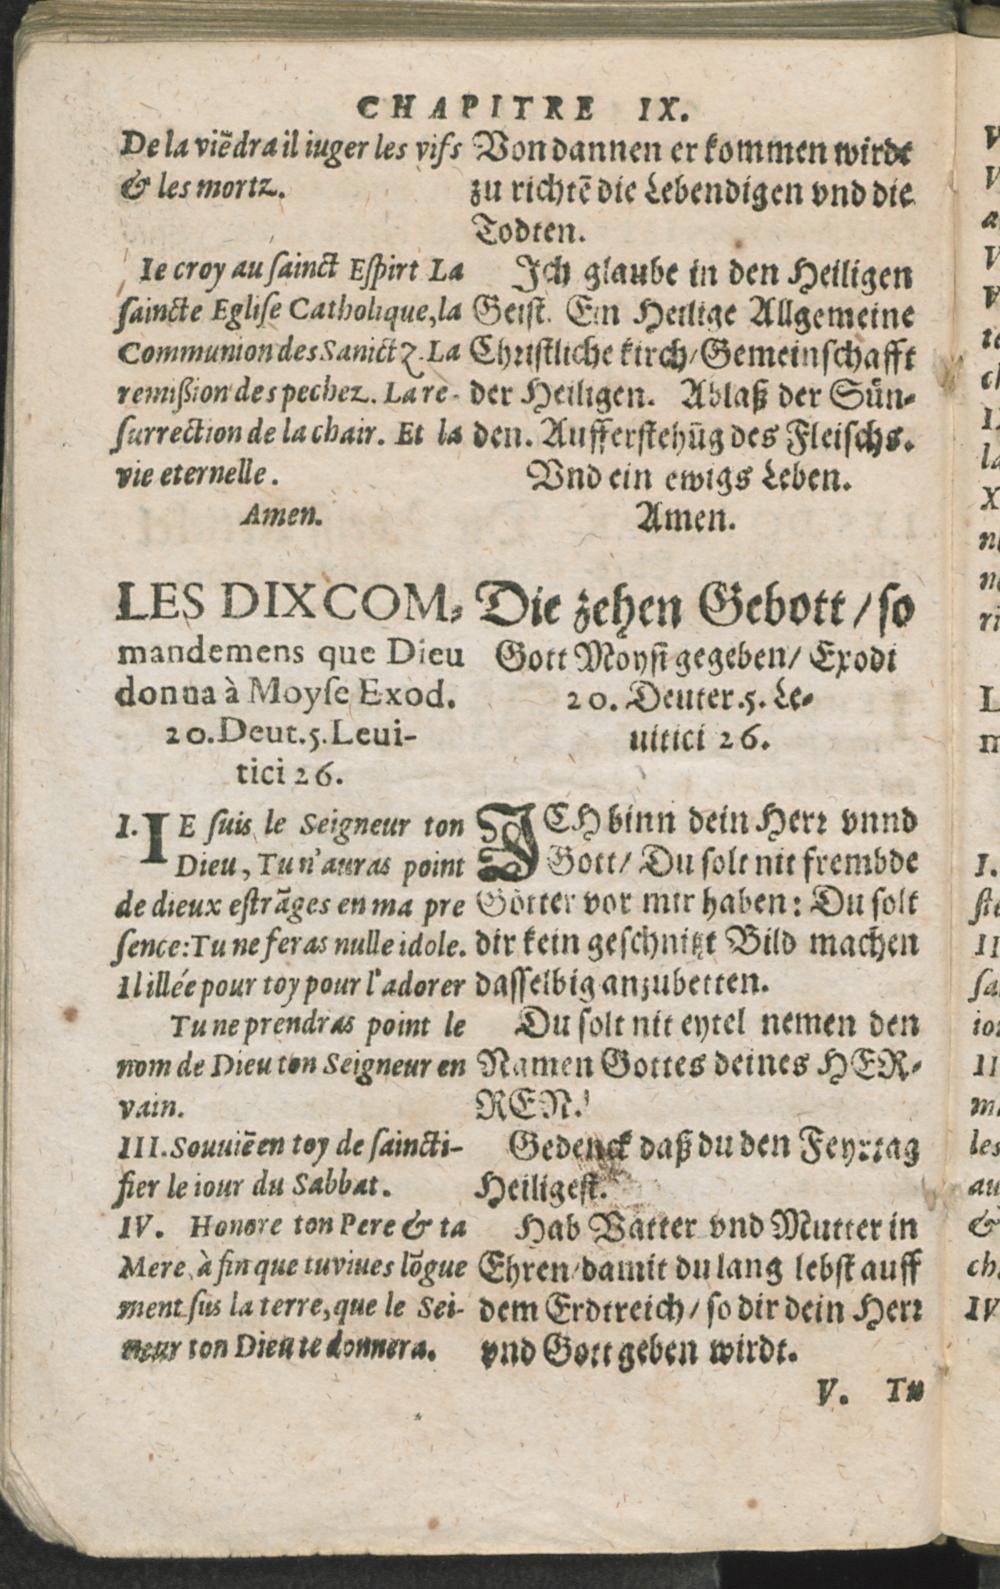 CHAPITRE IX.
De la viēdra il iuger les vifs
& les mortz.
Ie croy au ſainct Eſpirt La
ſaincte Egliſe Catholique, la
Communion des Sanictz. La
remißion des pechez. La re-
ſurrection de la chair. Et la
vie eternelle.
Amen.
Von dannen er kommen wirdt
zu richtē die Lebendigen vnd die
Todten.
Ich glaube in den Heiligen
Geiſt. Ein Heilige Allgemeine
Chriſtliche kirch/Gemeinſchafft
der Heiligen. Ablaß der Sün-
den. Aufferſtehūg des Fleiſchs.
Vnd ein ewigs Leben.
Amen.
LES DIX COM-
mandemens que Dieu
donna à Moyſe Exod.
20. Deut. 5. Leui-
tici 26.
Die zehen Gebott/ſo
Gott Moyſi gegeben/ Exodi
20. Deuter. 5. Le-
uitici 26.
I. IE ſuis le Seigneur ton
Dieu, Tu n'auras point
de dieux eſtrāges en ma pre
ſence: Tu ne feras nulle idole.
Il illée pour toy pour l'adorer
Tu ne prendras point le
nom de Dieu ton Seigneur en
vain.
III. Souuiē en toy de ſaincti-
fier le iour du Sabbat.
IV. Honore ton Pere & ta
Mere, à fin que tu viues lōgue
ment ſus la terre, que le Sei-
neur ton Dieu te donnera.
ICH binn dein Herr vnnd
Gott/ Du ſolt nit frembde
Götter vor mir haben: Du ſolt
dir kein geſchnitzt Bild machen
daſſelbig anzubetten.
Du ſolt nit eytel nemen den
Namen Gottes deines HER-
REN.
Gedenck daß du den Feyrtag
Heiligeſt.
Hab Vatter vnd Mutter in
Ehren/damit du lang lebſt auff
dem Erdtreich/ſo dir dein Herr
vnd Gott geben wirdt.
V. Tu